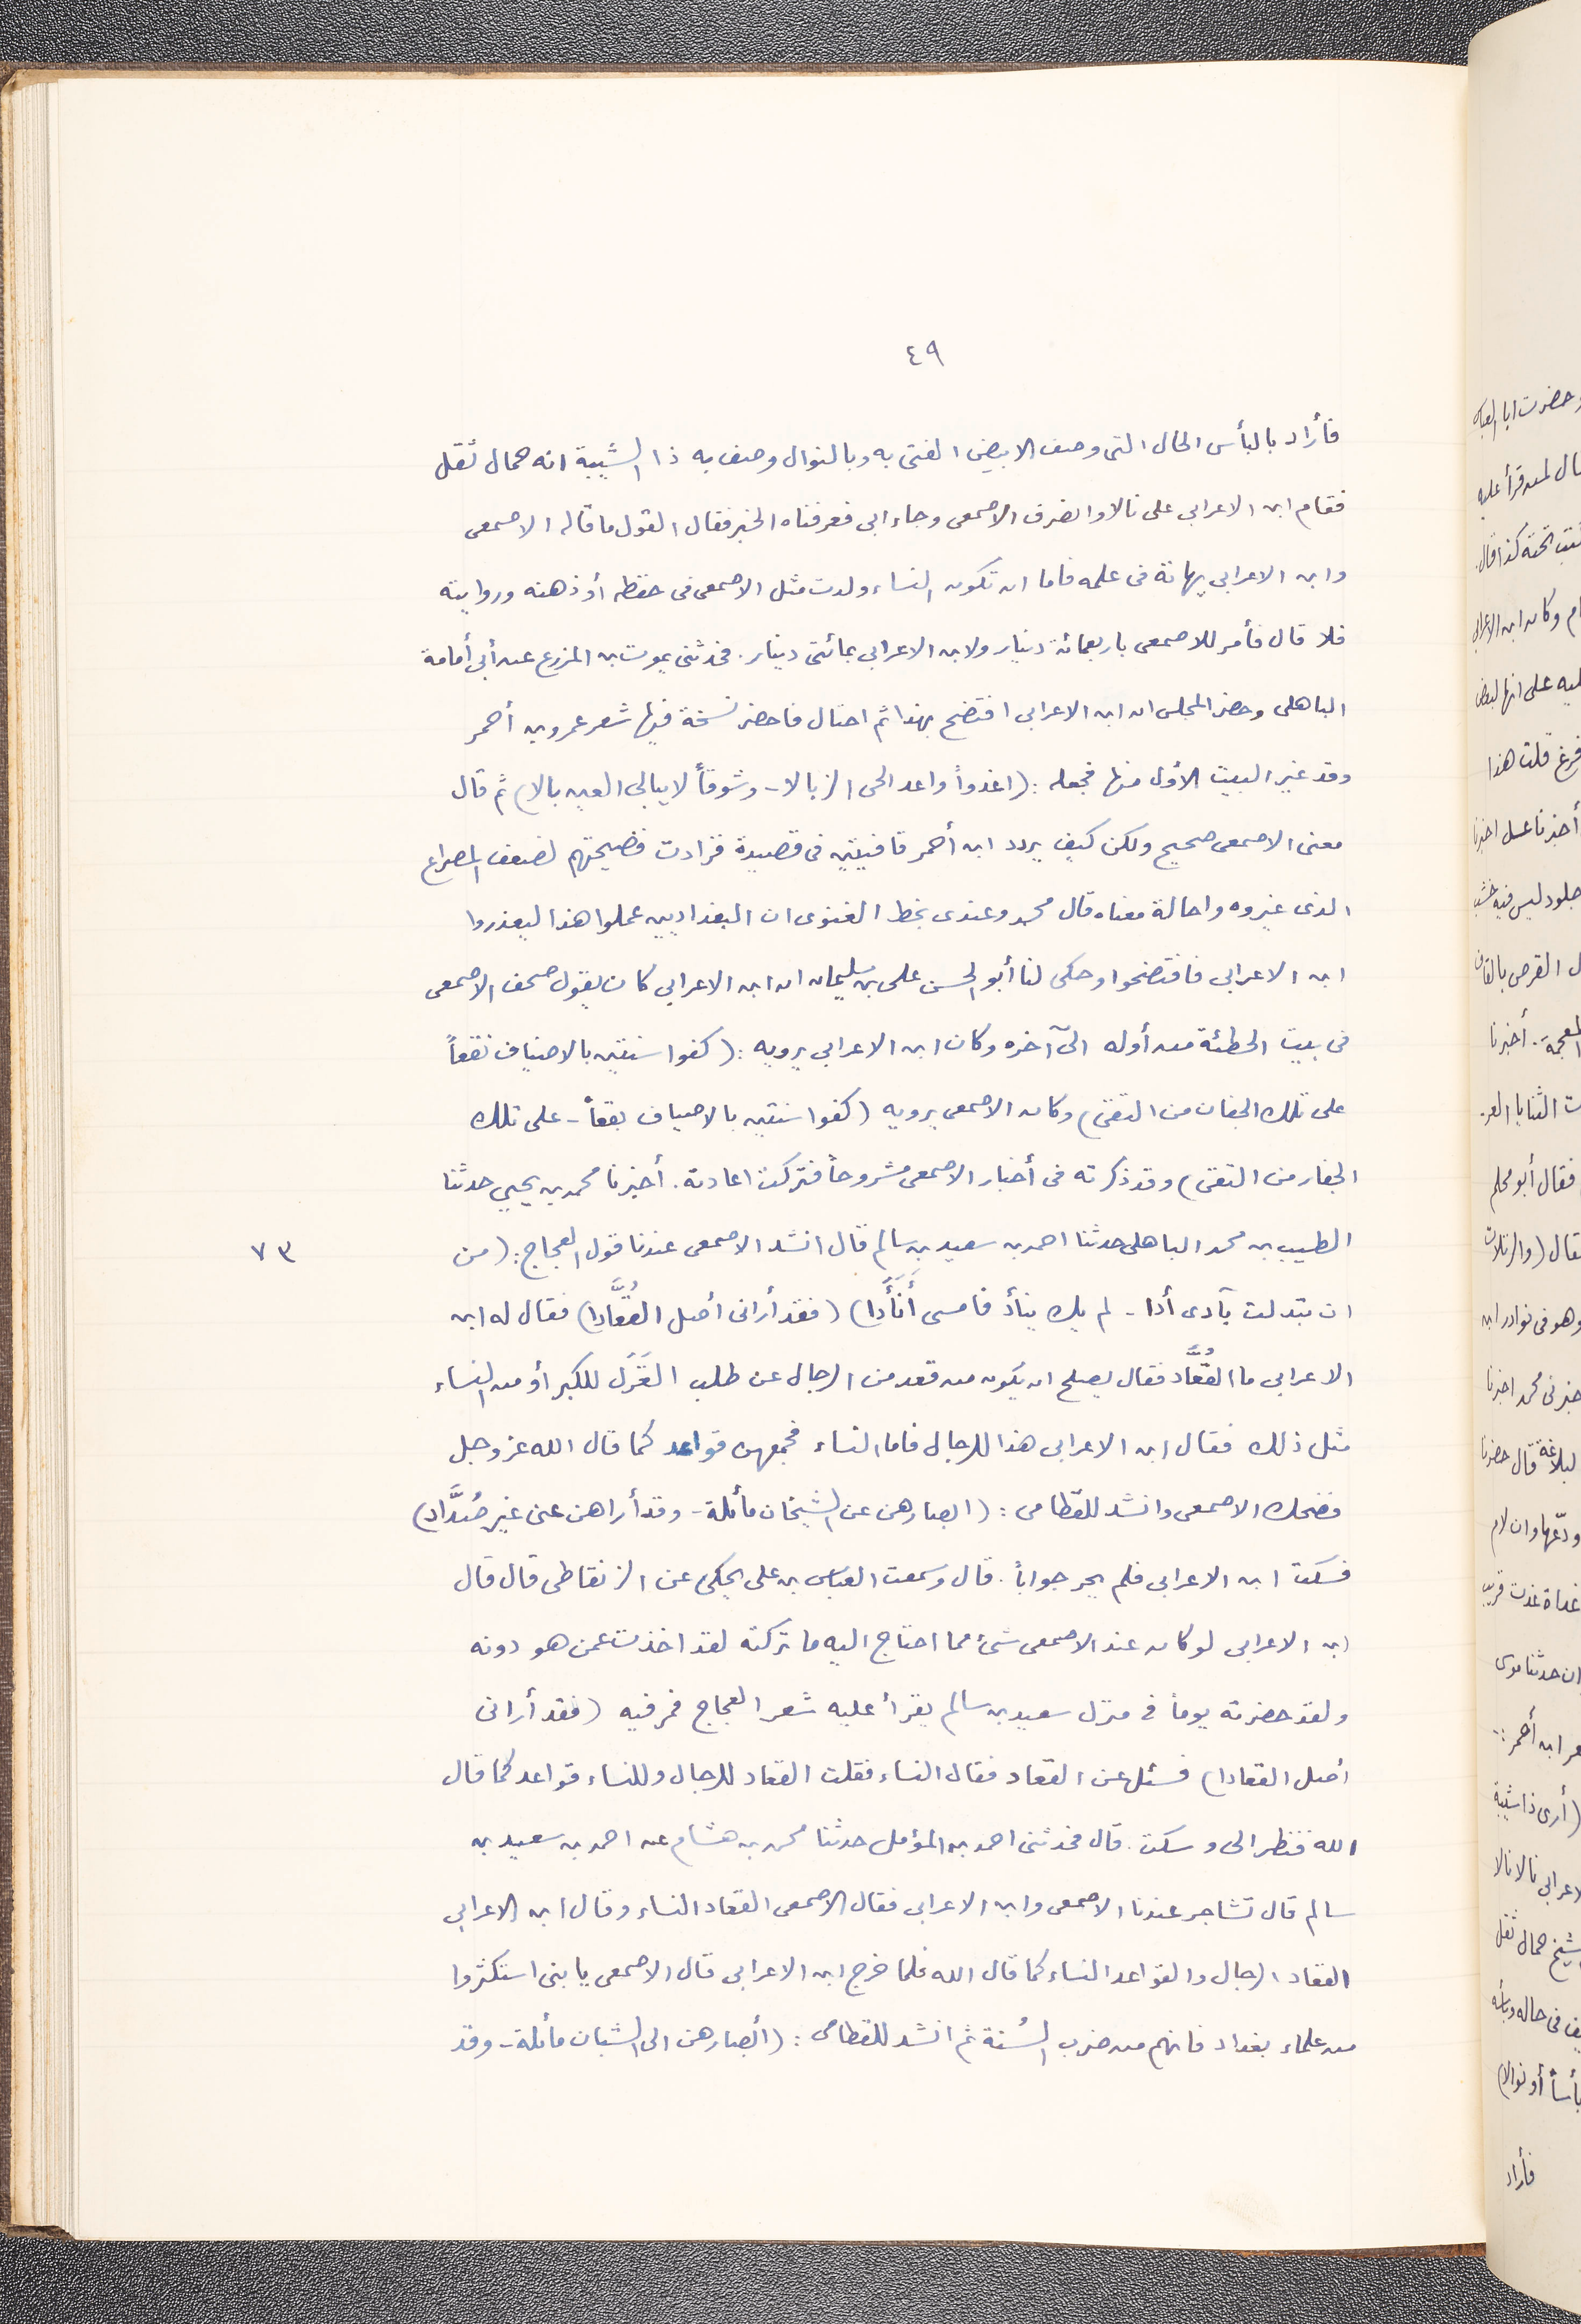 ٤٩
فأراد بالبأس الحال التى وصف الابيض الفتى به وبالنوال وصف به ذا الشيبة انه حمال ثقل
فقام ابن الاعرابى على نالا وانصرف الاصمعى وجاء ابى فعرفناه الخبر فقال القول ما قاله الاصمعى
وابن الاعرابى نهاية فى علمه فاما ان تكون النساء ولدت مثل الاصمعى فى حفظه أو ذهنه وروايته
فلا قال فأمر للاصمعى باربعمائة دينار ولابن الاعرابى بمائتى دينار. فحدثنى يموت بن المزرع عن أبى أمامة
الباهلى وحضر المجلس ان ابن الاعرابى افتضح بهذا ثم احتال فاحضر نسخة فيها شعر عمرو بن أحمر
وقد غير البيت الأول منها فجعله : (اغدواً واعد الحى الزيالا - وشوقاً لا يبالى العين بالا) ثم قال
معنى الاصمعى صحيح ولكن كيف يردد ابن أحمر قافيتين فى قصيدة فزادت فضيحتهم لضعف المصراع
الذى غيروه واحالة معناه قال محمد وعندى بخط الغنوى ان البغداديين عملوا هذا ليعذروا
ابن الاعرابى فافتضحوا وحكى لنا أبو الحسن على بن سليمان ان ابن الاعرابى كان يقول صحف الاصمعى
فى بيت الحطئة من أوله الى آخره وكان ابن الاعرابى يرويه : (كفوا سنتين بالاضياف نقعاً
على تلك الجفان من النقى) وكان الاصمعى يرويه (كفوا سنتين بالاصياف بقعاً - على تلك
الجفار من النقى) وقد ذكرته فى أخبار الاصمعى مشروحاً فتركت اعادته. أخبرنا محمد بن يحيى حدثنا
الطيب بن محمد الباهلى حدثنا احمد بن سعيد بن سالم قال انشد الاصمعى عندنا قول العجاج : (من
٧٣
ان تبدلت بآدى أدا - لم يك ينأد فامسى أَنَأَدا) (فقد أرانى أصل القُعَّادا) فقال له ابن
الاعرابى ما القُعَّاد فقال يصلح ان يكون من قعد من الرجال عن طلب الغَزَل للكبر أو من النساء
مثل ذلك فقال ابن الاعرابى هذا للرجال فاما النساء فجمعهن قواعد كما قال الله عز وجل
فضحك الاصمعى وانشد للقطامى : (ابصارهن عن الشيخان مائلة - وقد أراهن عنى غير صُدَّاد)
فسكت ابن الاعرابى فلم يحر جواباً. قال وسمعت العباس بن على يحكى عن الزنقاطى قال قال
ابن الاعرابى لو كان عند الاصمعى شئ مما احتاج اليه ما تركته لقد اخذت عمن هو دونه
ولقد حضرته يوماً فى منزل سعيد بن سالم يقرأ عليه شعر العجاج فمر فيه (فقد أرانى
أصل القعادا) فسئل عن القعاد فقال النساء فقلت القعاد للرجال وللنساء قواعد كما قال
الله فنظر الى وسكت. قال فحدثنى احمد بن المؤمل حدثنا محمد بن هشام عن احمد بن سعيد بن
سالم قال تشاجر عندنا الاصمعى وابن الاعرابى فقال الاصمعى القعاد النساء وقال ابن الاعرابى
القعاد الرجال والقواعد النساء كما قال الله فلما خرج ابن الاعرابى قال الاصمعى يا بنى استكثروا
من علماء بغداد فانهم من ضرب السُنة ثم انشد للقطامى : (أبصارهن الى الشبان مائلة - وقد